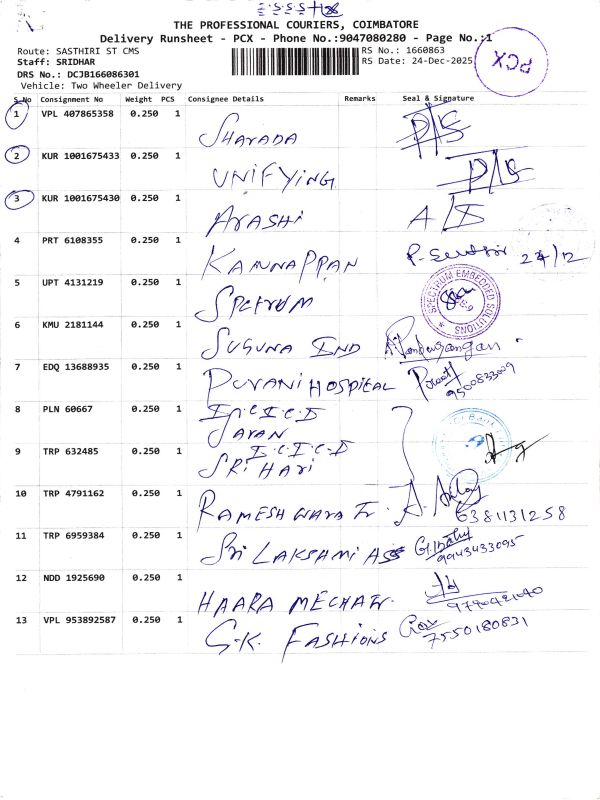 THE PROFESSIONAL COURIERS, COIMBATORE
Delivery Runsheet - PCX - Phone No.:9047080280 - Page No.:1
Route: SASTHIRI ST CMS
RS No.: 1660863
Staff: SRIDHAR
RS Date: 24-Dec-2025
PCX
DRS No.: DCJB166086301
Vehicle: Two Wheeler Delivery
S.No Consignment No Weight PCS Consignee Details Remarks Seal & Signature
1 VPL 407865358 0.250 1 SHARADA P/S
2 KUR 1001675433 0.250 1 UNIFYING P/S
3 KUR 1001675430 0.250 1 ARASHI
4 PRT 6108355 0.250 1 KANNAPPAN 24/12
5 UPT 4131219 0.250 1 SPCTRUM SPECTRUM EMBEDDED SOLUTIONS
6 KMU 2181144 0.250 1 SUGUNA IND
7 EDQ 13688935 0.250 1 PURANI HOSPITAL 9500833009
8 PLN 60667 0.250 1 I.C.I.C.I JAYAN
9 TRP 632485 0.250 1 I.C.I.C.I SRI HARI
10 TRP 4791162 0.250 1 RAMESHWARA Tr. 6381131258
11 TRP 6959384 0.250 1 SRI LAKSHMI ASS 9943433095
12 NDD 1925690 0.250 1 HAARA MECHAT
13 VPL 953892587 0.250 1 G.K. FASHIONS 7550180831